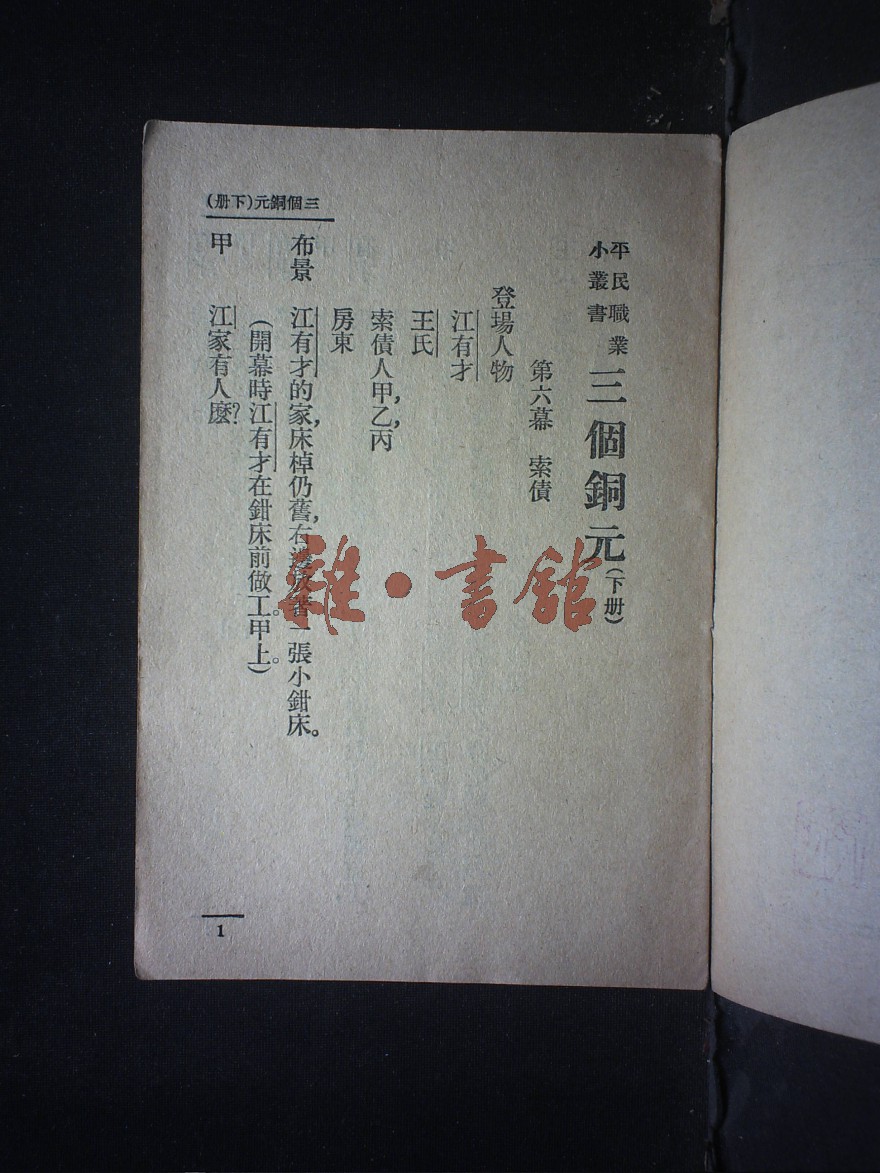 三個銅元(下册)
平民職業
小叢書
三個銅元(下册)
第六幕 索債
登場人物
江有才
王氏
索債人甲,乙,丙
房東
布景 江有才的家,床棹仍舊,右邊放著一張小鉗床。
(開幕時江有才在鉗床前做工。甲上。)
甲 江家有人麽?
1
雜·書館